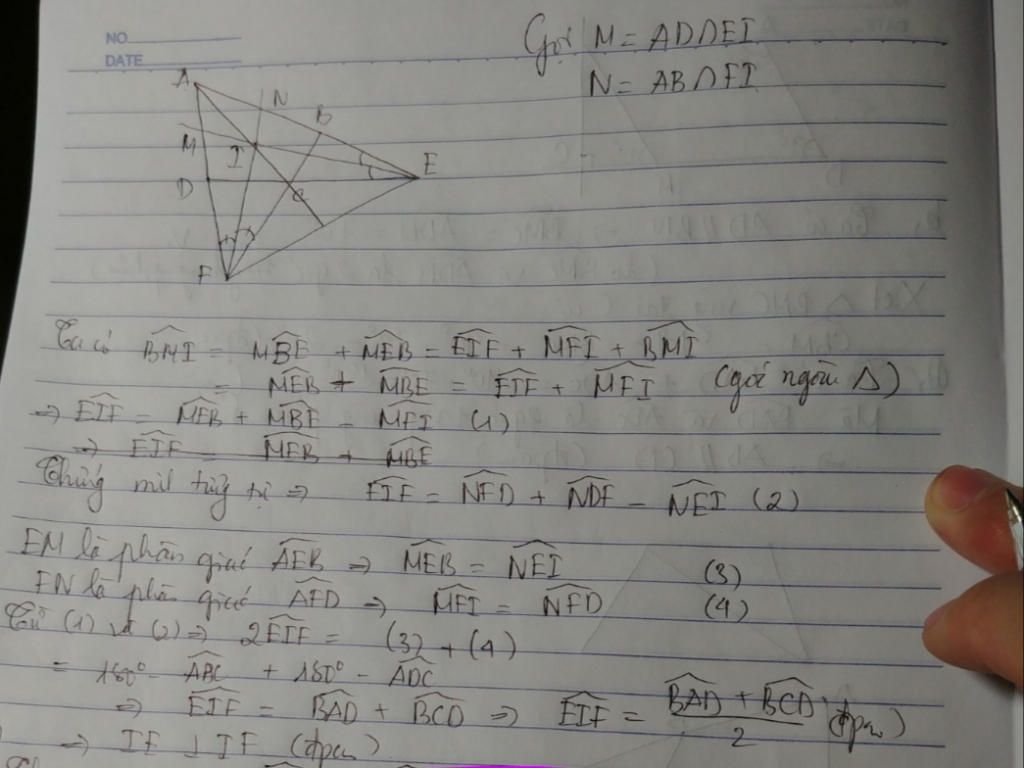 NO
DATE
Gọi M = AD∩EI
N = AB∩FI
A
N
B
M
I
E
D
C
F
Ta có BMI = MBE + MEB = EIF + MFI + BMI
= MEB + MBE = EIF + MFI (góc ngoài Δ)
⇒ EIF = MEB + MBE - MFI (1)
⇒ EIF = MEB + MBE
Chứng mil tương tự ⇒ EIF = NFD + NDF - NEI (2)
EM là phân giác AEB ⇒ MEB = NEI (3)
FN là phân giác AFD ⇒ MFI = NFD (4)
Từ (1) và (2) ⇒ 2EIF = (3) + (4)
= 180° - ABC + 180° - ADC
⇒ EIF = BAD + BCD ⇒ EIF = BAD + BCD / 2 (đpcm)
⇒ IE ⊥ IF (đpcm)